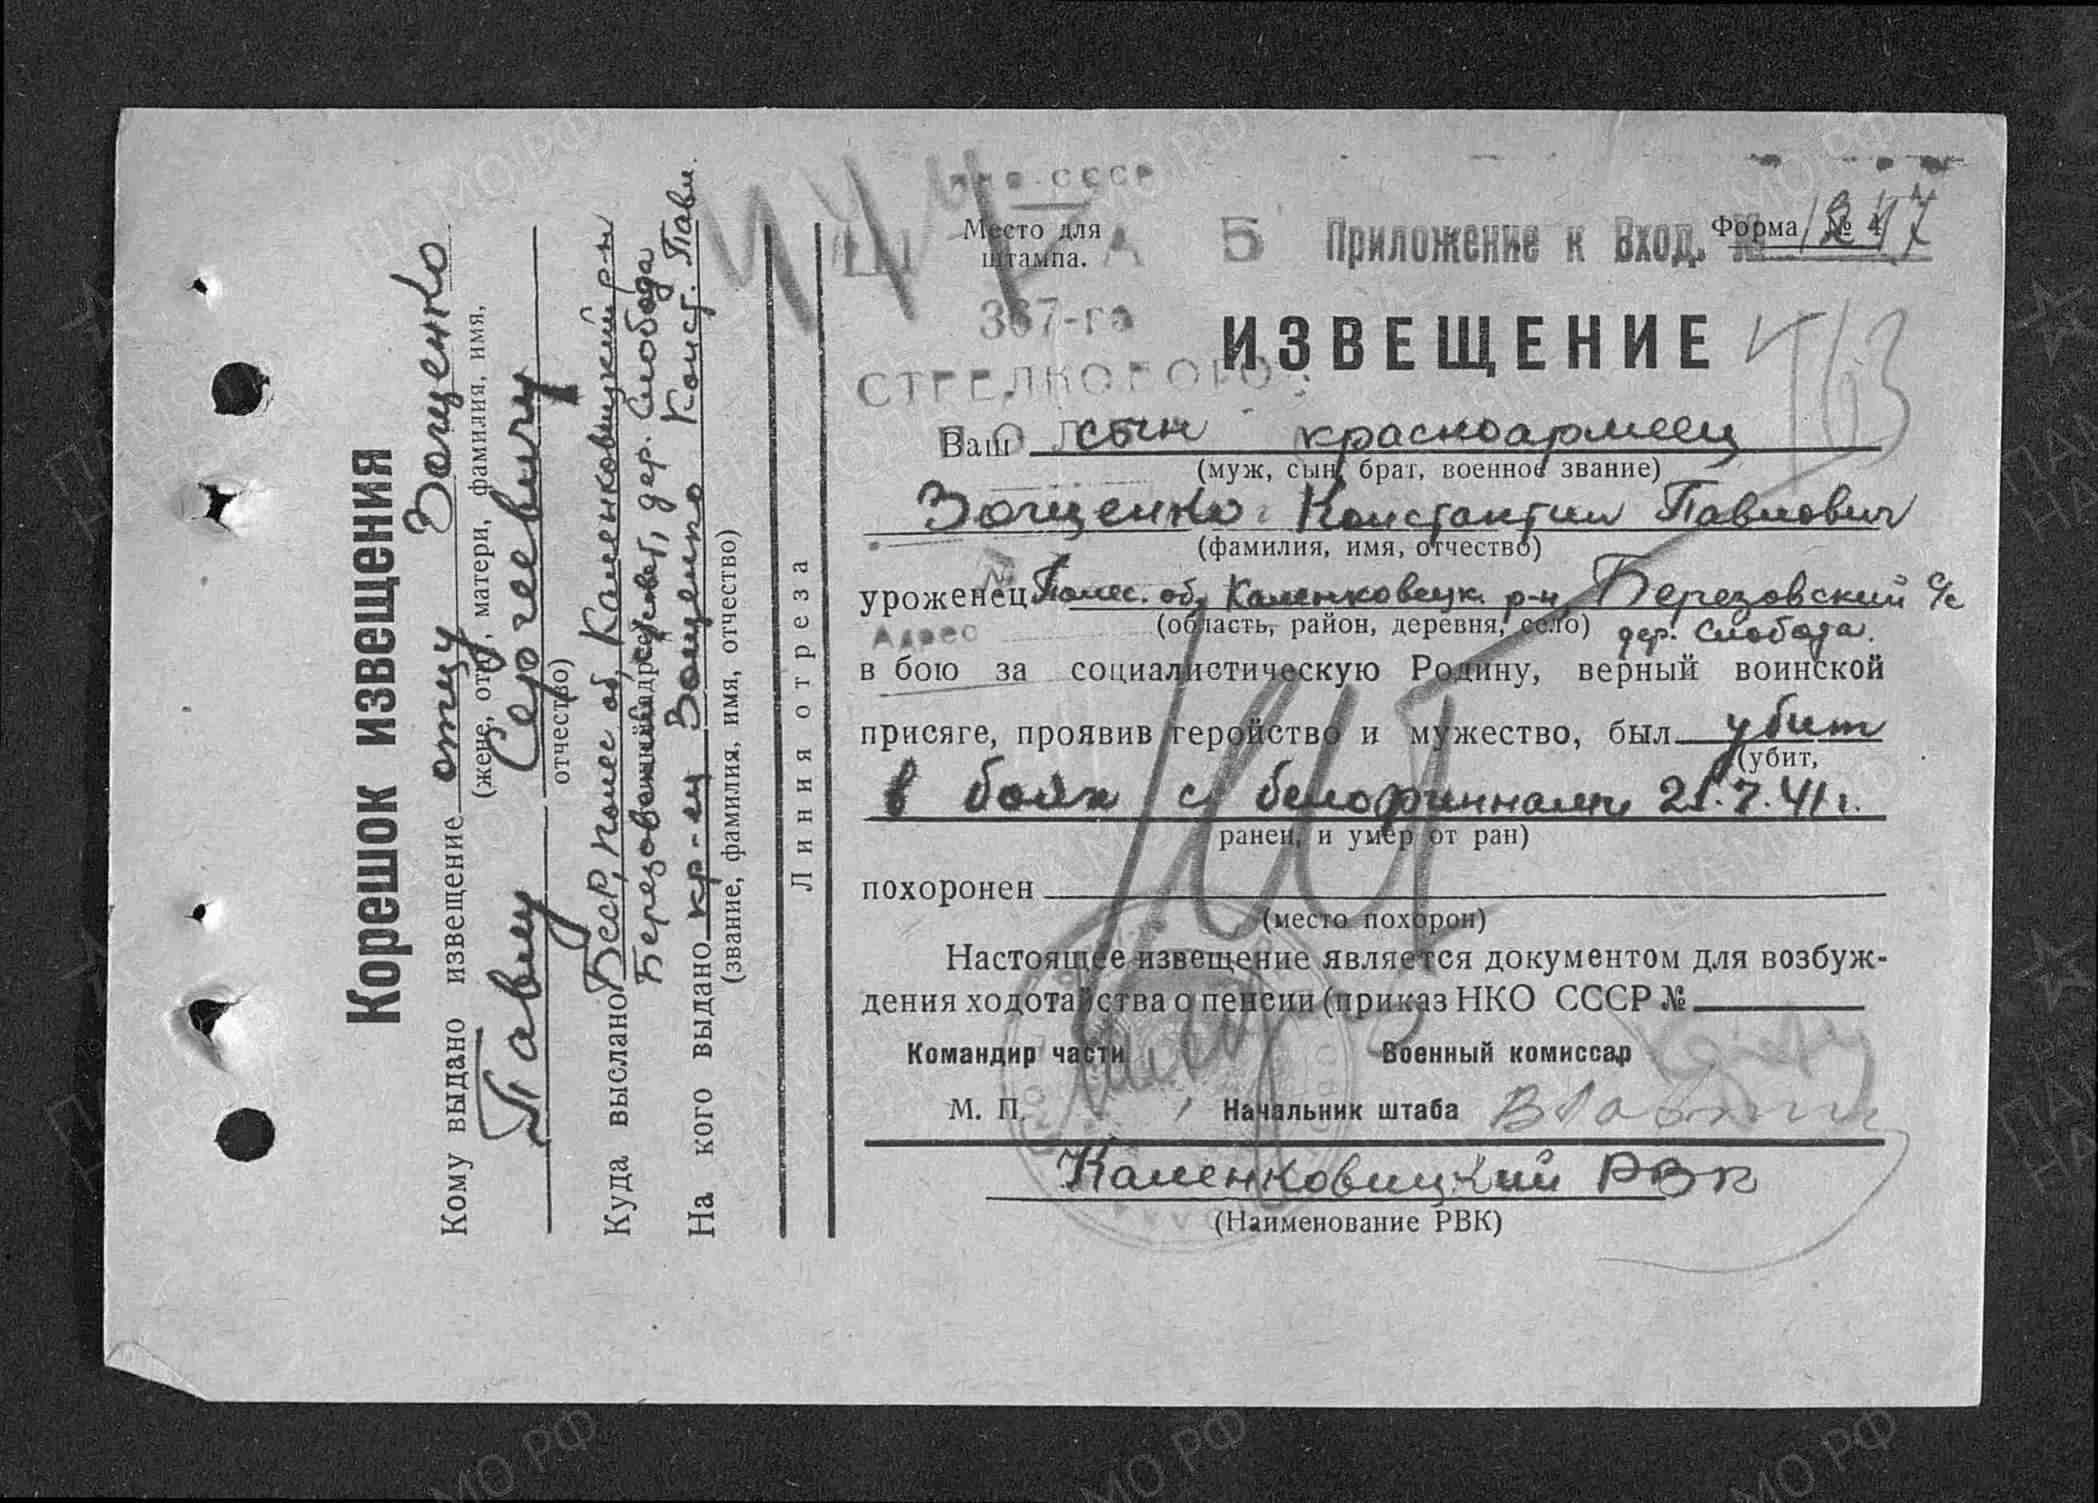 Корешок извещения
Кому выдано извещение отцу Зощенко
(жене, отцу, матери, фамилия, имя,
Павлу Сергеевичу
отчество)
Куда выслано БССР, Полес об, Каменковицкий р-н
Березовский с/совет, дер. Слобода
На кого выдано кр-ец Зощенко Конст. Павл.
(звание, фамилия, имя, отчество)
Линия отреза
СССР
Место для
штампа.
Ш А Б
Приложение к Вход. №
Форма № 4
1247
367-го
СТРЕЛКОВОГО
ИЗВЕЩЕНИЕ
Ваш сын красноармеец
(муж, сын, брат, военное звание)
Зощенко Константин Павлович
(фамилия, имя, отчество)
уроженец Полес. об, Каменковецк. р-н, Березовский с/с
(область, район, деревня, село) дер. Слобода.
Адрес
в бою за социалистическую Родину, верный воинской
присяге, проявив геройство и мужество, был убит
(убит,
в боях с белофиннами 25.7.41 г.
ранен, и умер от ран)
похоронен
(место похорон)
Настоящее извещение является документом для возбуж-
дения ходотайства о пенсии (приказ НКО СССР №
Командир части Военный комиссар
М. П. Начальник штаба
Каменковицкий РВК
(Наименование РВК)